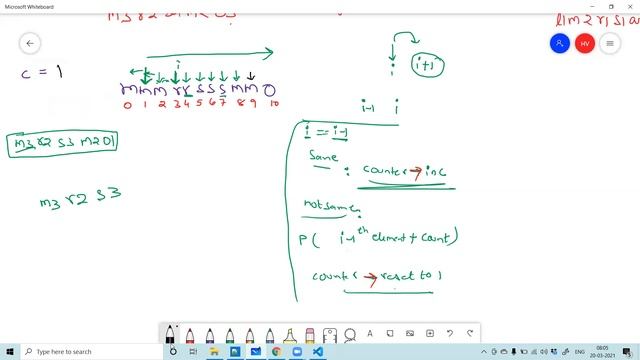 Microsoft Whiteboard
m3 r2
HV
c = 1
i
i
i+1
m m m r r s s s m m O
0 1 2 3 4 5 6 7 8 9 10
i-1 i
m3 r2 s3 m2 o1
i == i-1
Same
: counter → inc
m3 r2 s3
not same :
P( i-1th element + count)
counter → reset to 1
Type here to search
ENG
08:05
20-03-2021